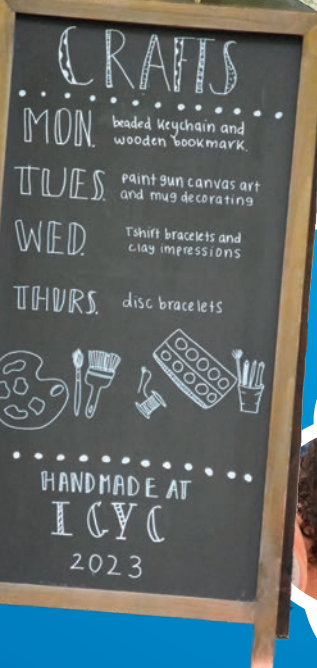 CRAFTS
MON. beaded keychain and
wooden bookmark.
TUES. paint gun canvas art
and mug decorating
WED. Tshirt bracelets and
clay impressions
THURS. disc bracelets
HANDMADE AT
ICYC
2023